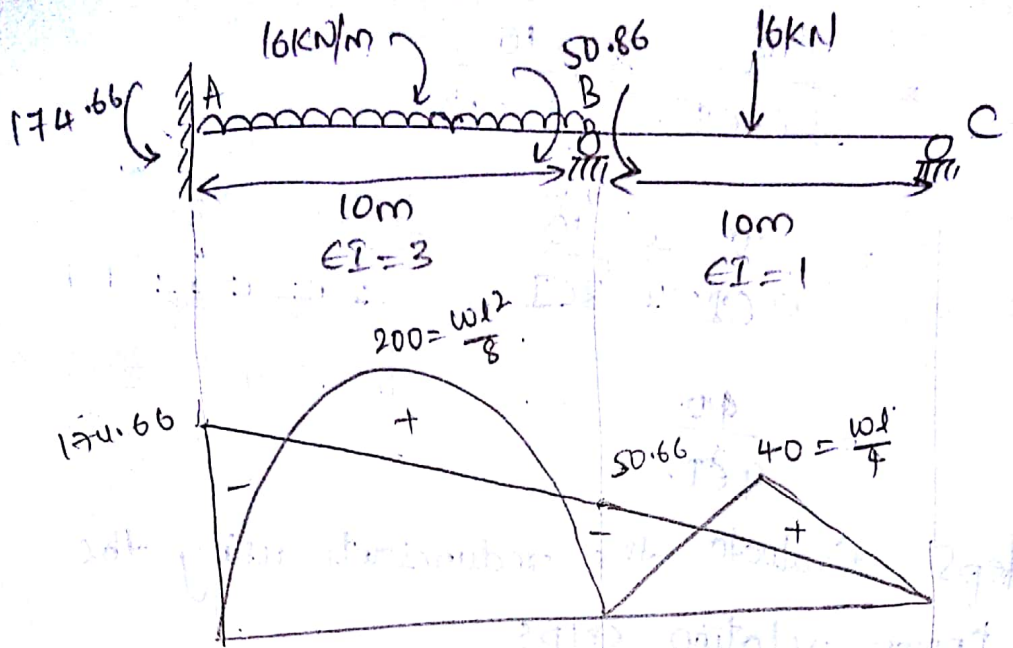 16KN/m
50.86
16KN
174.66
A
B
C
10m
10m
EI=3
EI=1
200=wl²/8.
174.66
50.66
40=wl/4
+
-
-
+